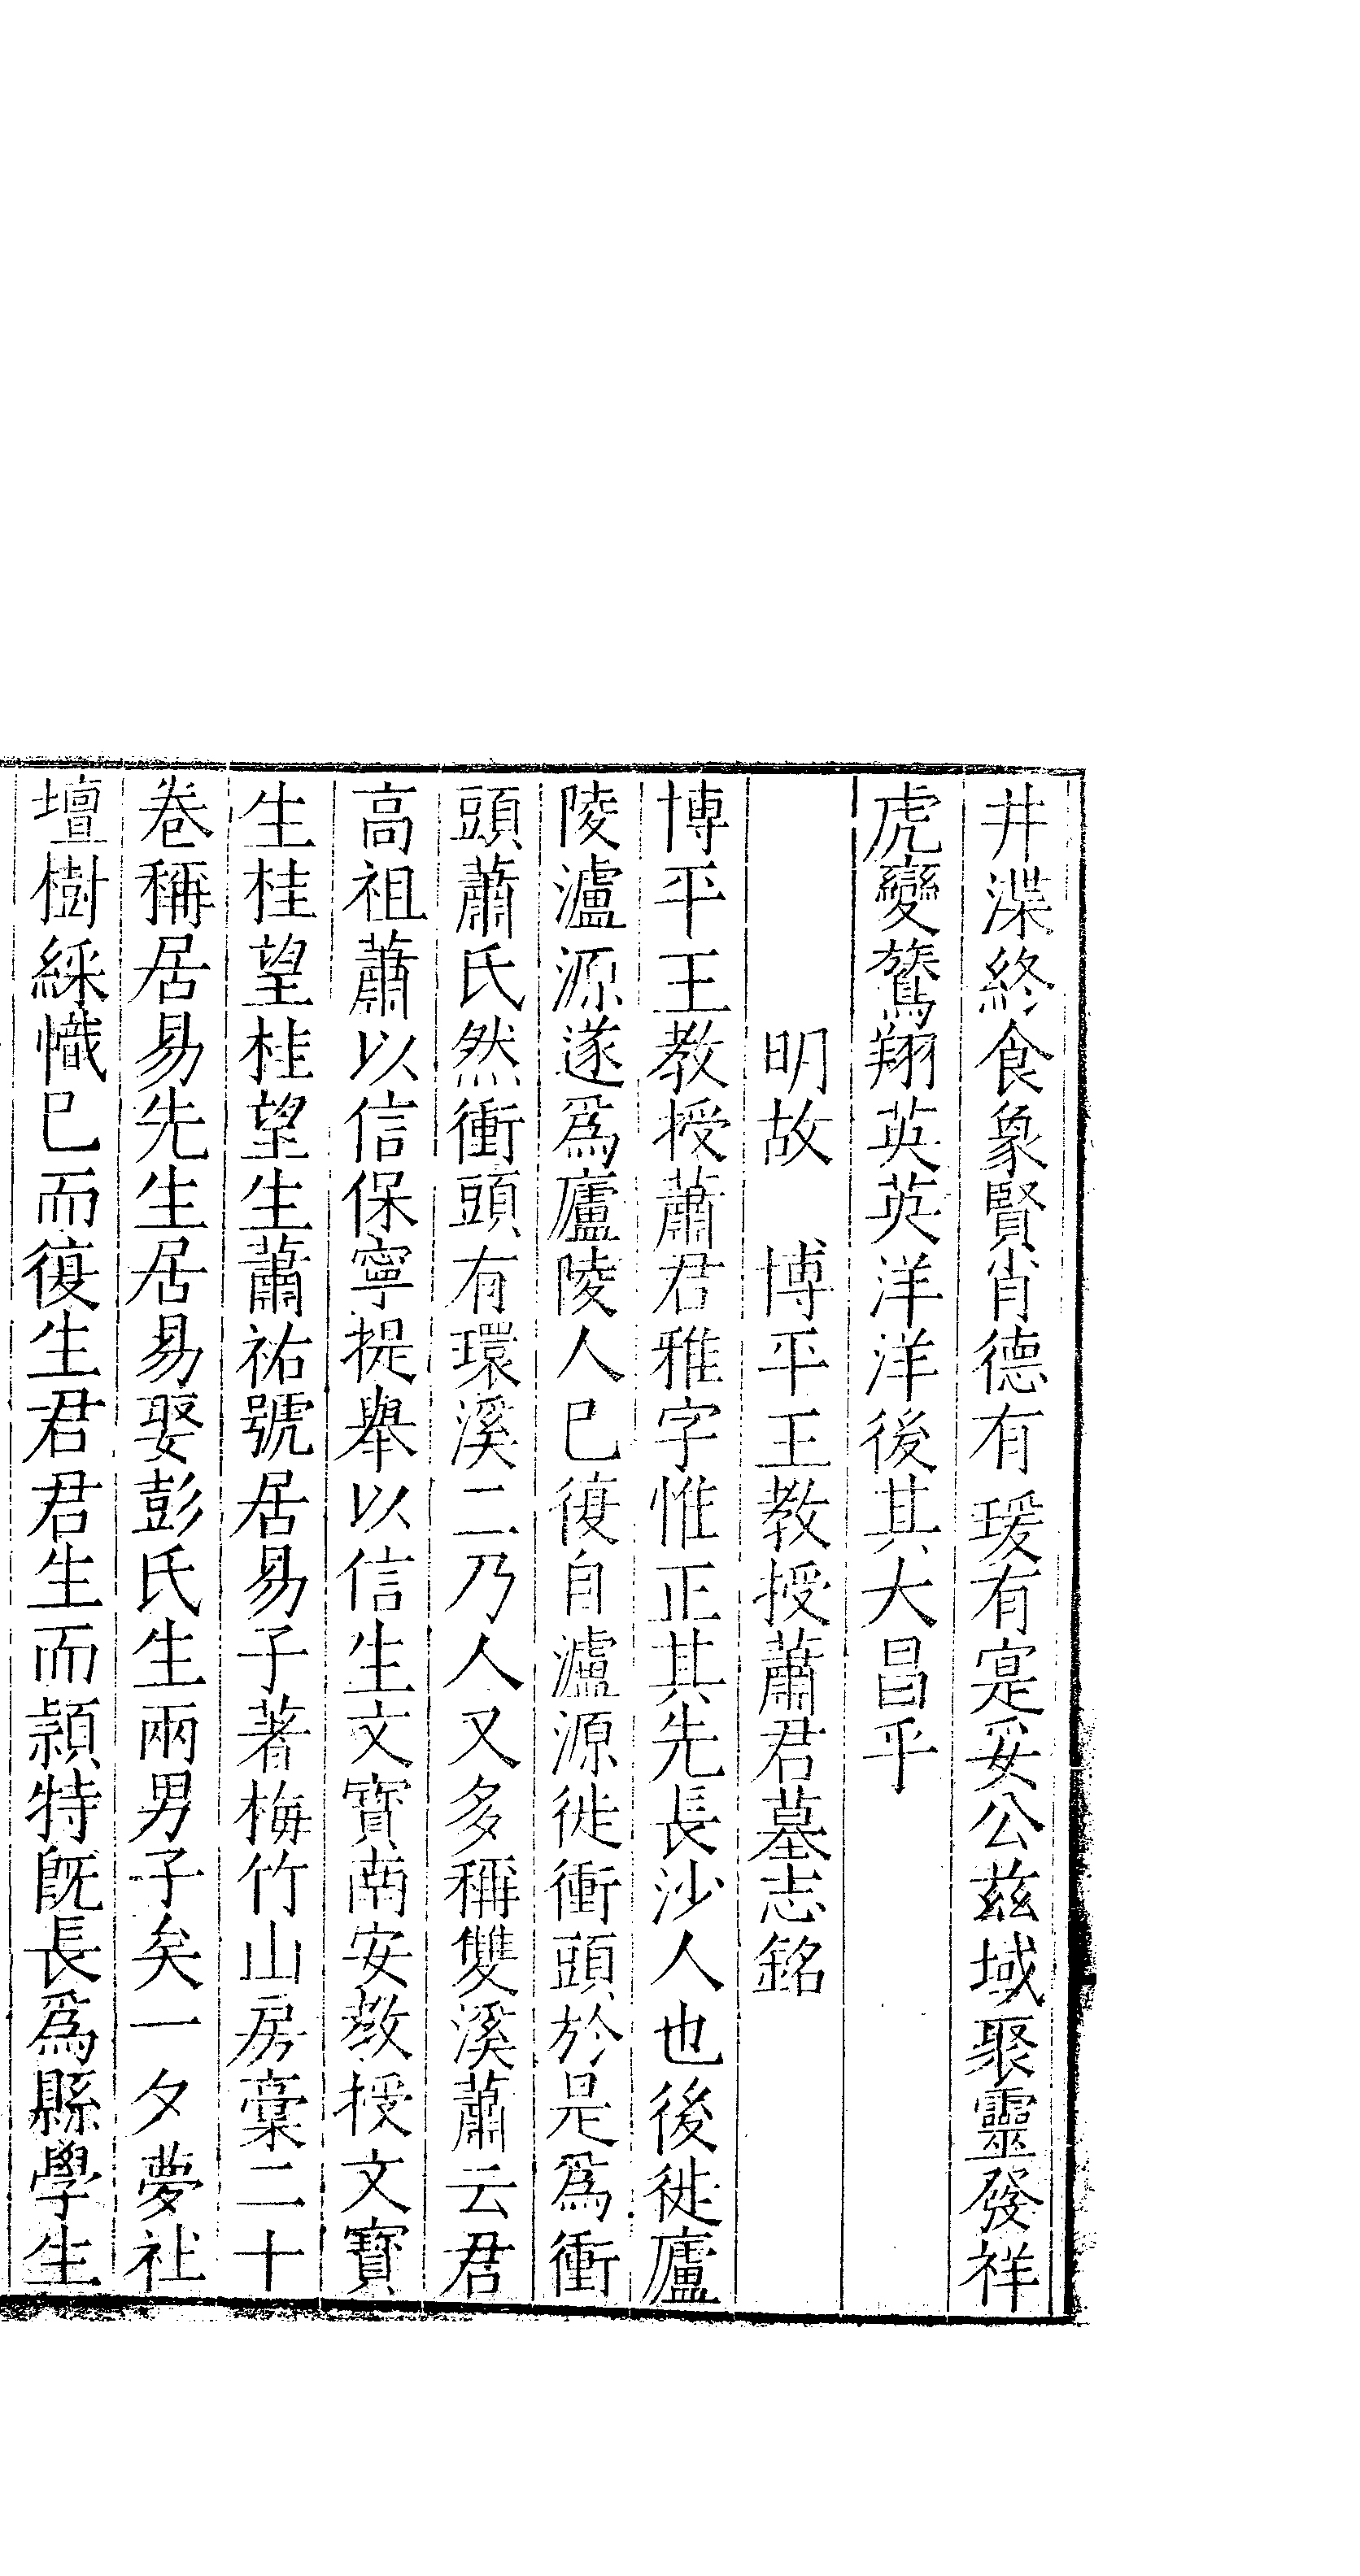 井渫終食象賢肖德有瑗有寔妥公茲域聚靈發祥
虎變鶩翔英英洋洋後其大昌乎
明故　博平王教授蕭君墓志銘
博平王教授蕭君雅字惟正其先長沙人也後徙廬
陵瀘源遂爲廬陵人巳復自瀘源徙衝頭於是爲衝
頭蕭氏然衝頭有環溪二乃人又多稱雙溪蕭云君
高祖蕭以信保寧提舉以信生文寶南安教授文寶
生桂望桂望生蕭祐號居易子著梅竹山房稾二十
卷稱居易先生居易娶彭氏生兩男子矣一夕夢社
壇樹綵幟巳而復生君君生而頴特旣長爲縣學生